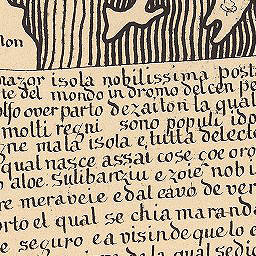 non
mazor isola nobilissima posta
te del mondo in dromo del cen pe
olfo over parto dezaiton la qual
molti regni sono populi ido
gne mala isola e tutta delecte
qual nasce assai cose çoe oro
o aloe. sulibanziu e zoie nobi
re meraveie edal cavo de ver
orto el qual se chiama randa
e seguro e a visin de quelo e
de la qual sedic